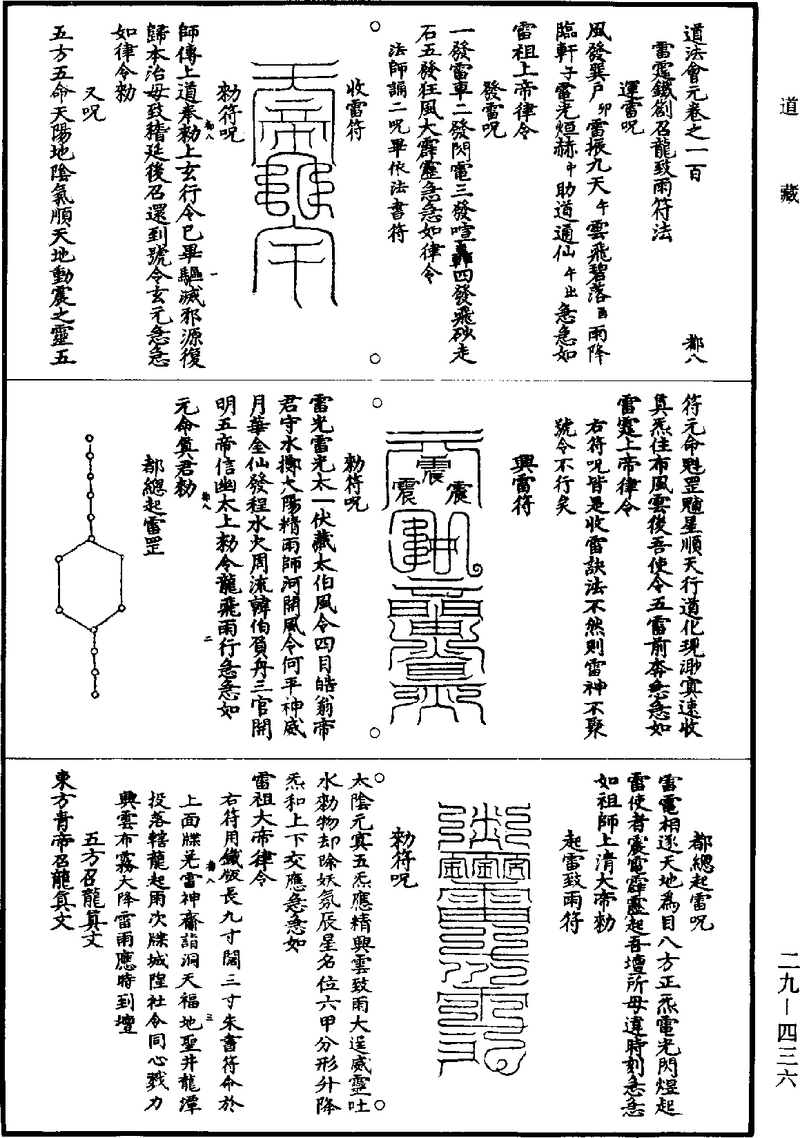 道藏
二九—四三六
道法會元卷之一百
都八
雷霆鐵劄召龍致雨符法
運雷呪
風發巽戶卯雷振九天午雲飛碧落酉雨降
臨軒子雷光烜赫中助道通仙午出急急如
雷祖上帝律令
發雷呪
一發雷車二發閃電三發喧轟四發飛砂走
石五發狂風大霹靂急急如律令
法師誦二呪畢依法書符
收雷符
勑符呪
師傳上道奉勑上玄行令已畢驅滅邪源復
都八
一
歸本治毋致稽延後召還到號令玄元急急
如律令勑
又呪
五方五命天陽地陰氣順天地動震之靈五
符元命魁罡隨星順天行道化現渺冥速收
真炁住布風雲後吾使令五雷前奔急急如
雷霆上帝律令
右符呪皆是收雷訣法不然則雷神不聚
號令不行矣
興雷符
震震震
勑符呪
雷光雷光太一伏藏太伯風令四目皓翁帝
君守水擲火陽精雨師河開風令何平神威
月華金仙發程水火周流韓伯負舟三官開
明五帝信幽太上勑令龍飛雨行急急如
二
元命真君勑
都八
都總起雷罡
都總起雷呪
雷電相逐天地為目八方正炁電光閃煜起
雷使者震電霹靂起吾壇所毋違時刻急急
如祖師上清大帝勑
起雷致雨符
勑符呪
太陰元真五炁應精興雲致雨大逞威靈吐
水勑物却除妖氛辰星名位六甲分形升降
炁和上下交應急急如
雷祖大帝律令
右符用鐵版長九寸闊三寸朱書符命於
都八
三
上面牒差雷神齎詣洞天福地聖井龍潭
投落轄龍起雨次牒城隍社令同心戮力
興雲布霧大降雷雨應時到壇
五方召龍真文
東方青帝召龍真文